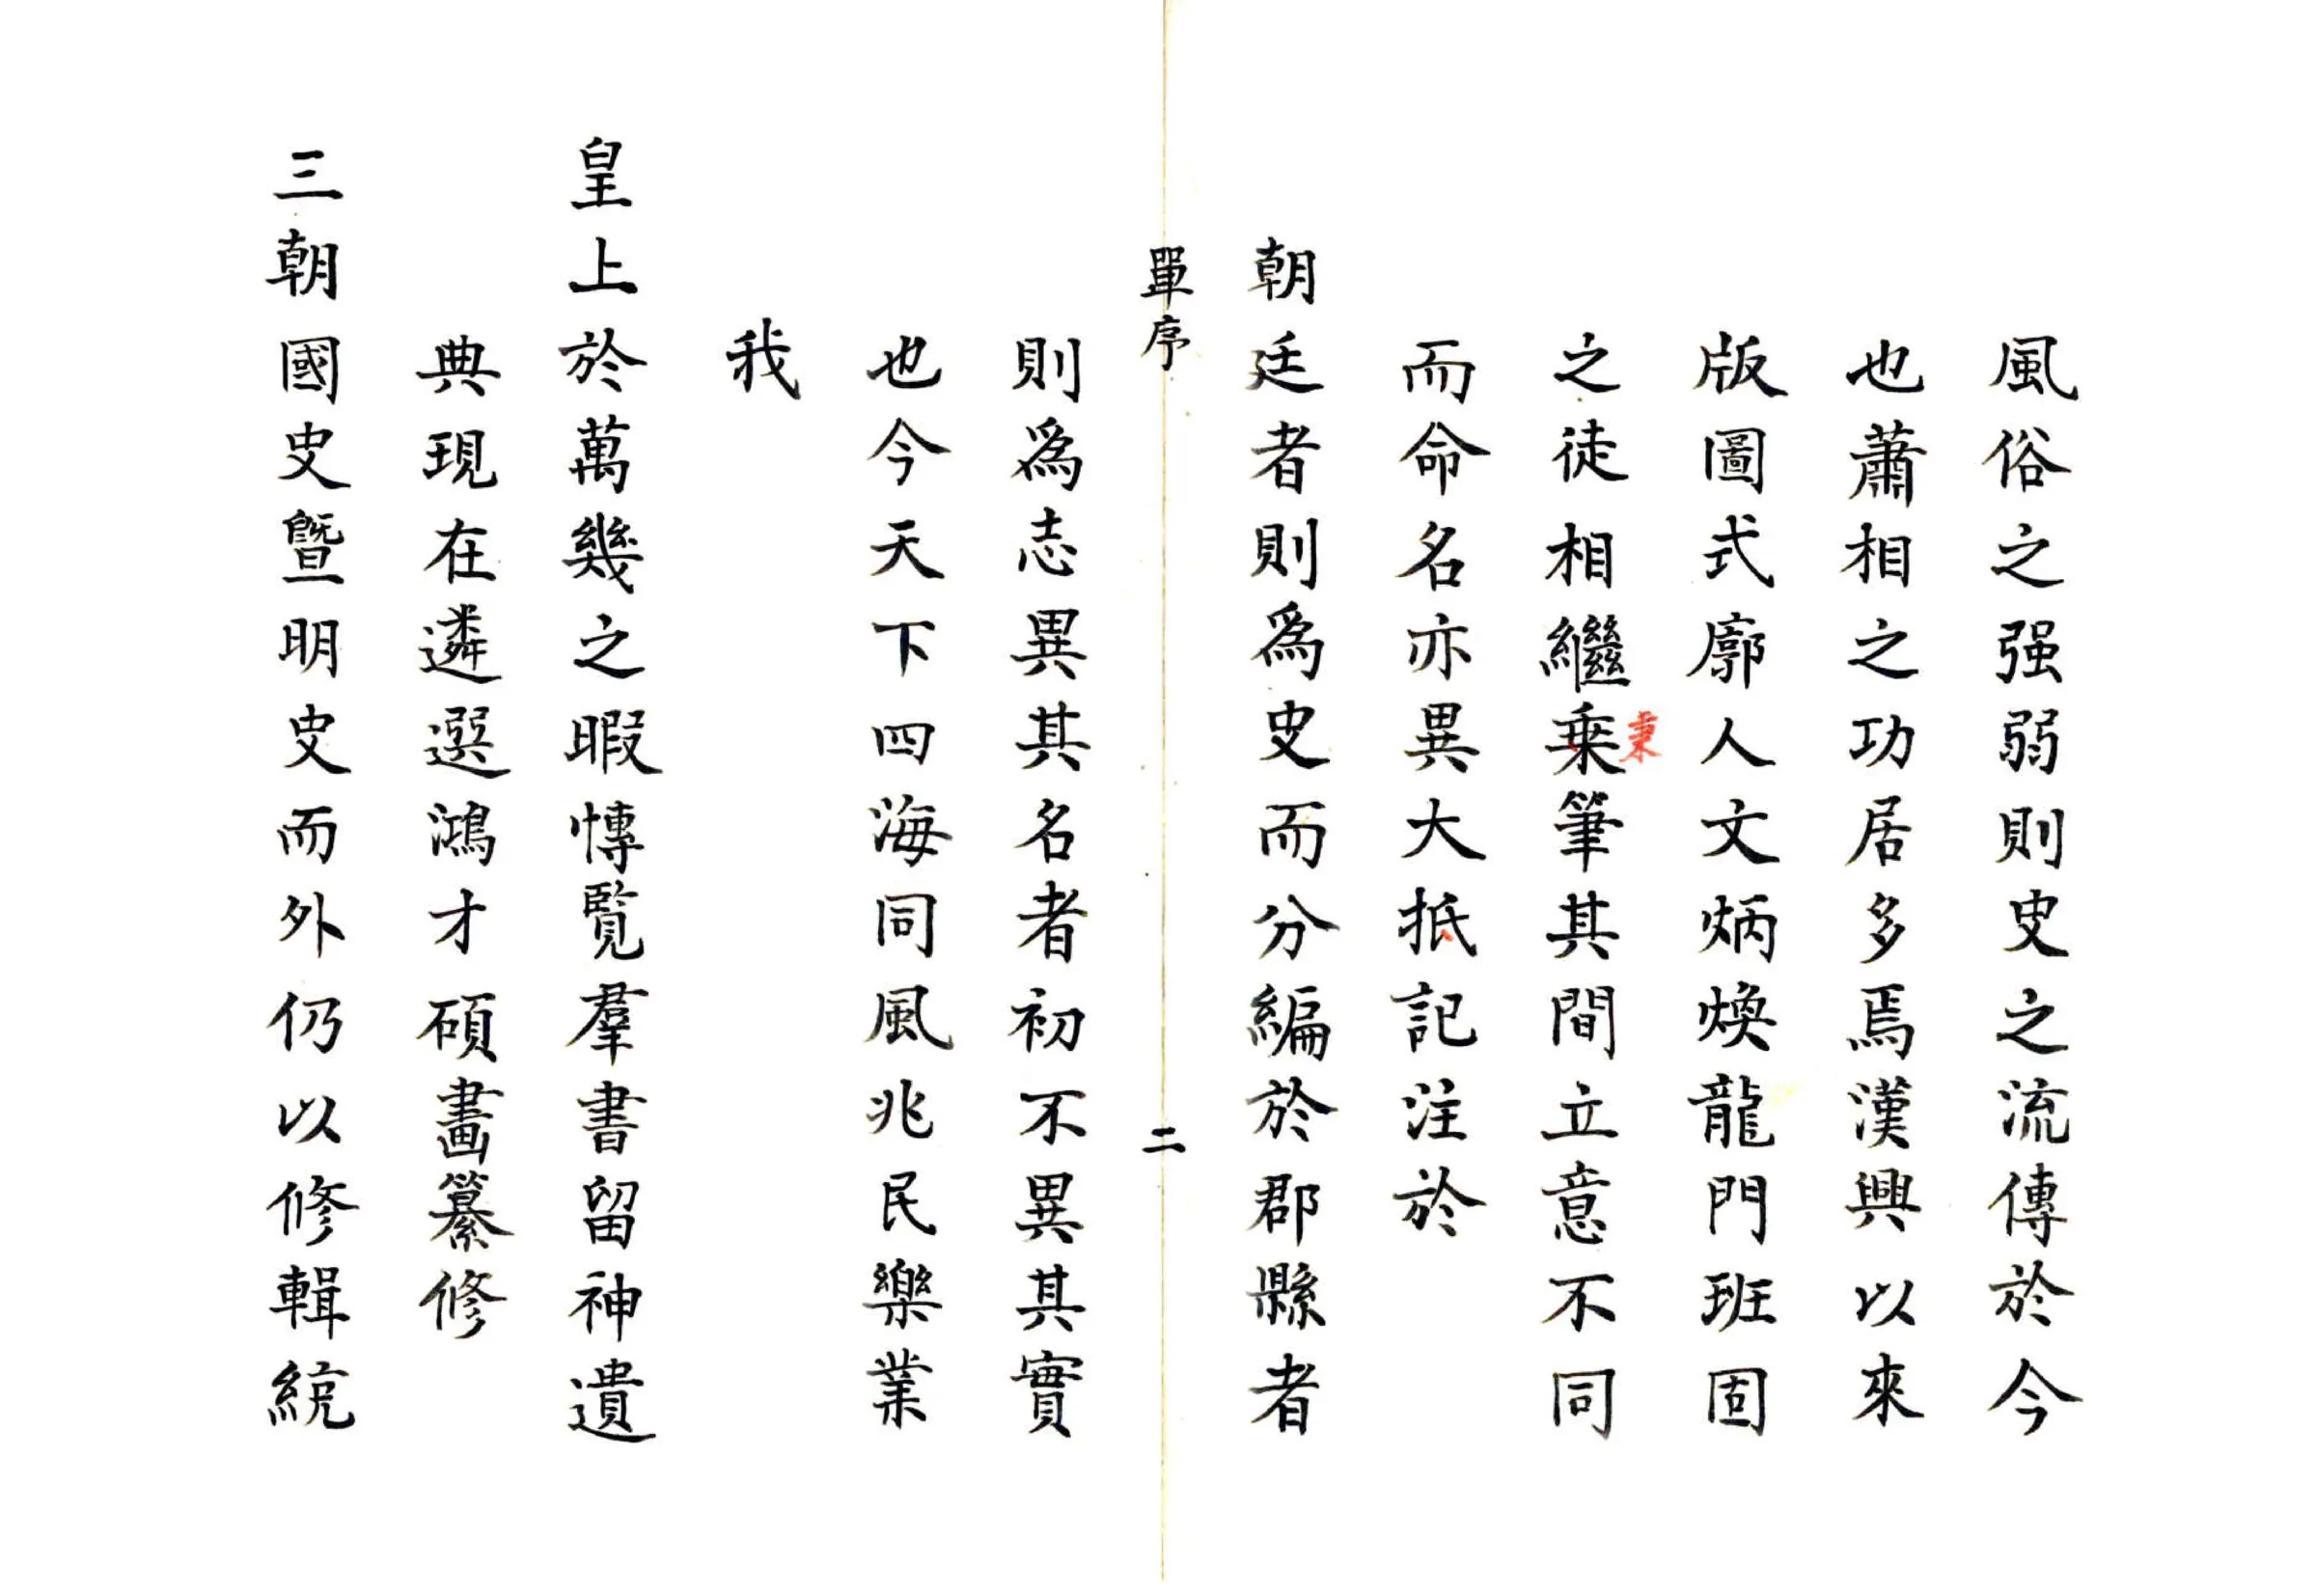 風俗之强弱則史之流傳於今
也蕭相之功居多焉漢興以來
版圖式廓人文炳煥龍門班固
之徒相繼乗筆其間立意不同
秉
而命名亦異大抵記注於
朝廷者則為史而分編於郡縣者
單序
二
則為志異其名者初不異其實
也今天下四海同風兆民樂業
我
皇上於萬幾之暇慱覧羣書留神遺
典現在遴選鴻才碩畫纂修
三朝國史暨明史而外仍以修輯統